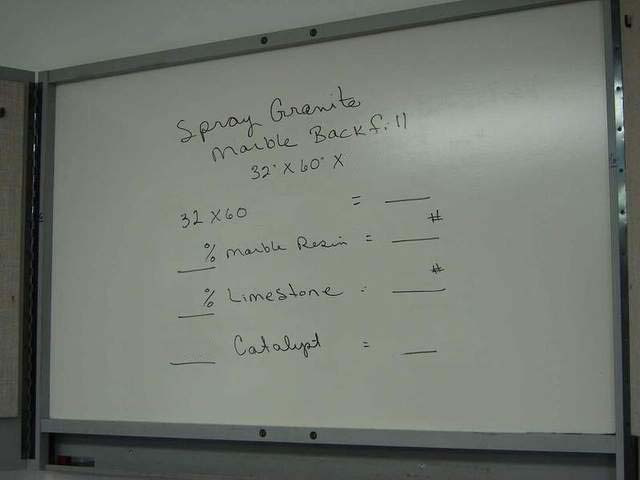 Spray Granite
Marble Backfill
32" X 60" X
32 X 60 = ___
___ % Marble Resin = ___ #
___ % Limestone = ___ #
___ Catalypt = ___